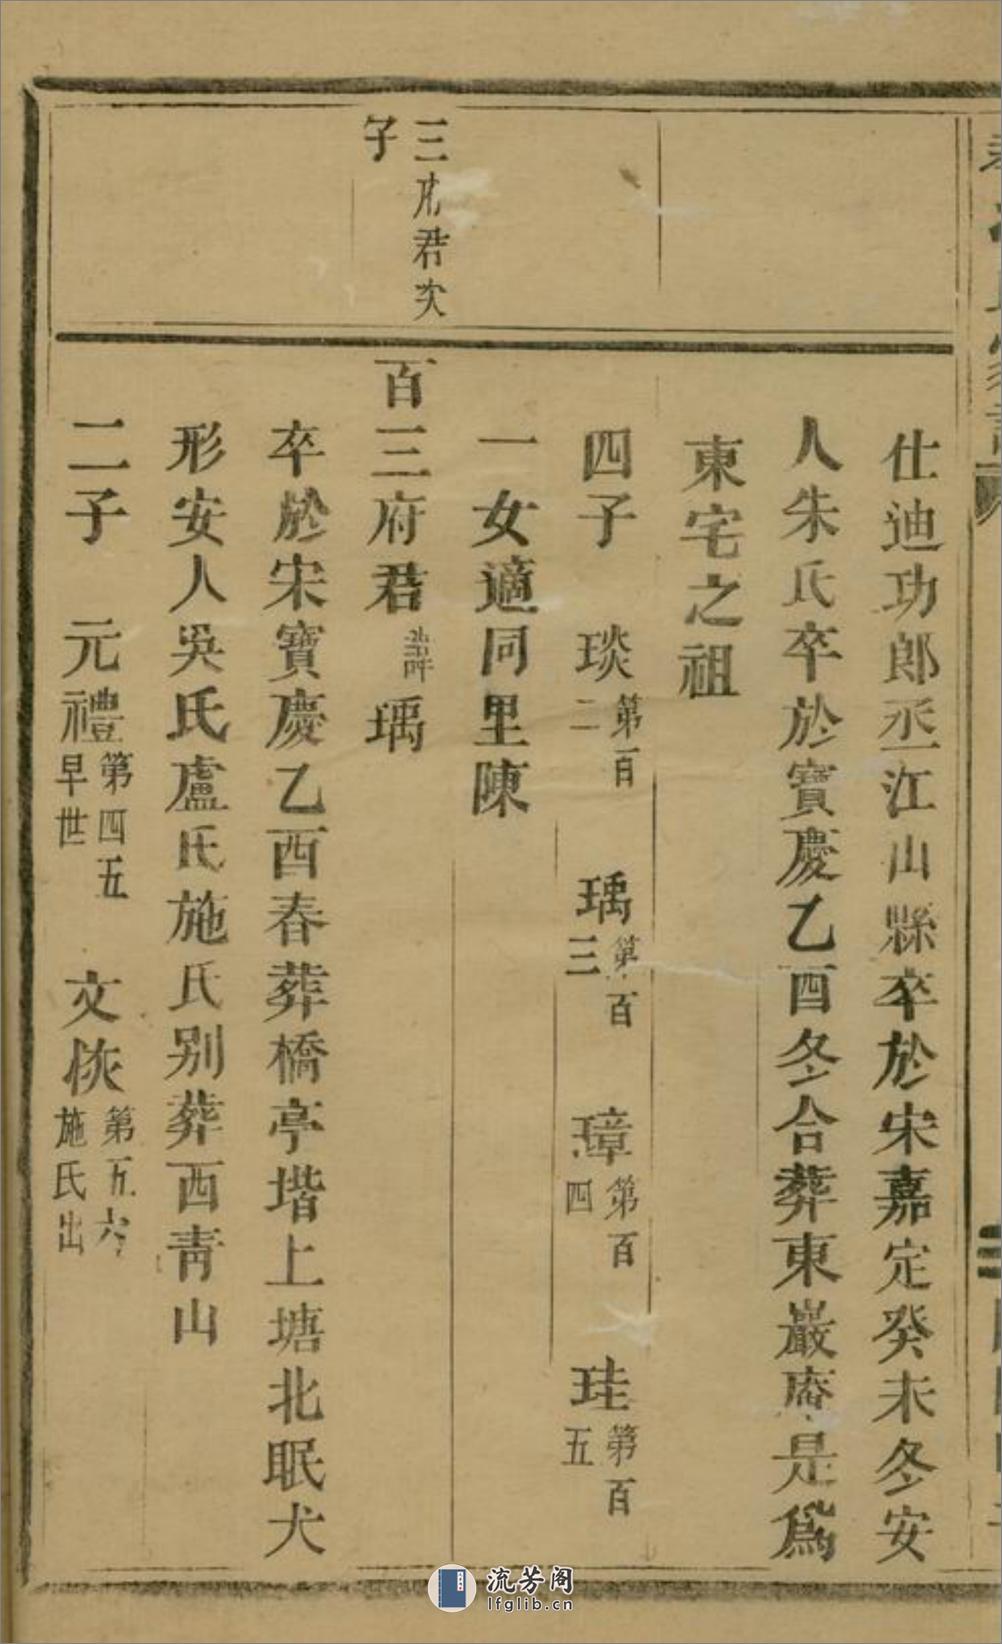 仕迪功郎丞江山縣卒於宋嘉定癸未冬安
人朱氏卒於寶慶乙酉冬合葬東巖庵是爲
東宅之祖
四子 琰第百二 瑀第百三 璋第百四 珪第百五
一女適同里陳
三府君次
子
百三府君諱瑀
卒於宋寶慶乙酉春葬橋亭堦上塘北眠犬
形安人吳氏盧氏施氏別葬西青山
二子 元禮第四五早世 文恢第五六施氏出
流芳阁
lfglib.cn